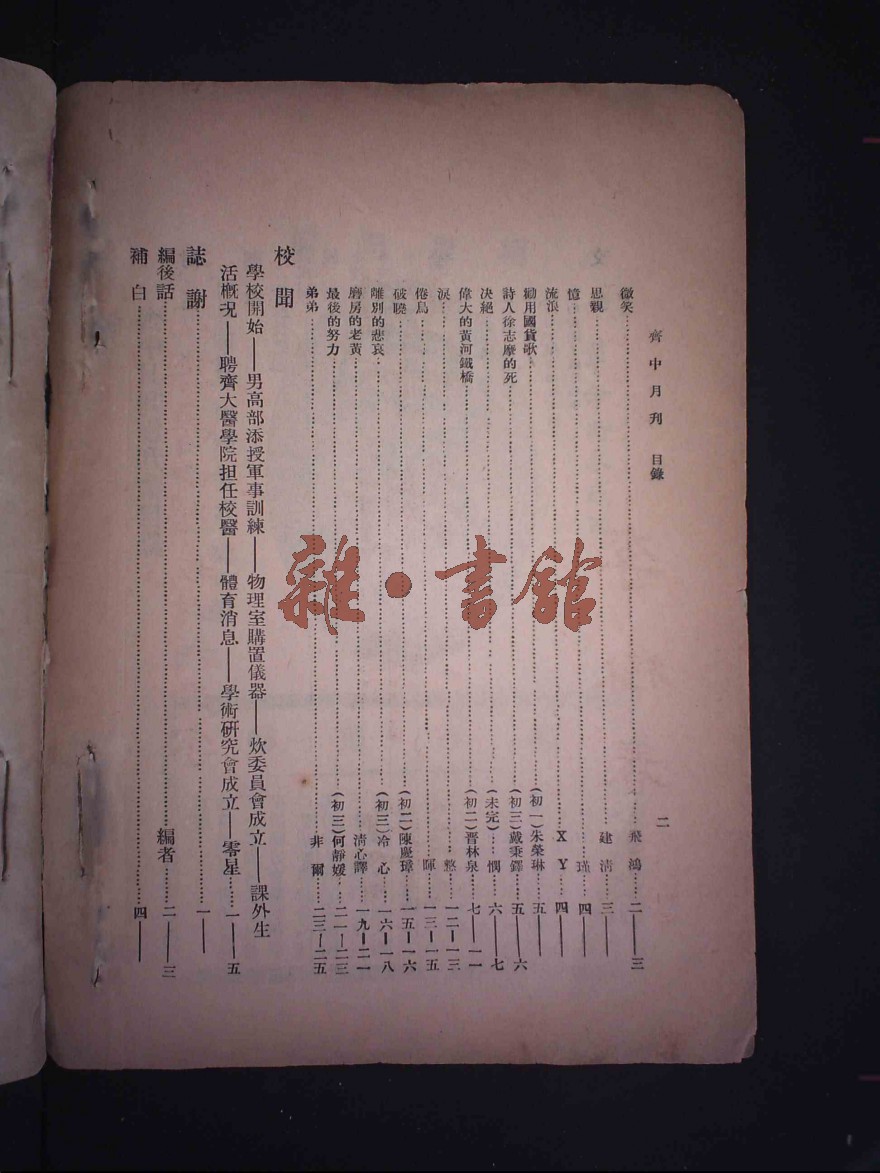 齊中月刋 目錄 二
微笑……飛鴻……二——三
思親……建淸……三——
憶……瑾……四——
流浪……X Y……四——
勸用國貨歌……(初一)朱榮琳……五——
詩人徐志摩的死……(初三)戴秉鐸……五——六
决絕……(未完)……惘……六——七
偉大的黃河鐵橋……(初二)晋林泉……七——一一
淚……慤……一二—一三
倦鳥……暉……一三—一五
破曉……(初二)陳慶璋……一五—一六
離別的悲哀……(初三)冷心……一六—一八
磨房的老黃……淸心譯……一九—二一
最後的努力……(初三)何靜媛……二一—二三
弟弟……非爾……二三—二五
校聞
學校開始——男高部添授軍事訓練——物理室購置儀器——炊委員會成立——課外生
活概况——聘齊大醫學院担任校醫——體育消息——學術研究會成立——零星……一——五
誌謝……一——
編後話……編者……二——三
補白……四——
雜·書館